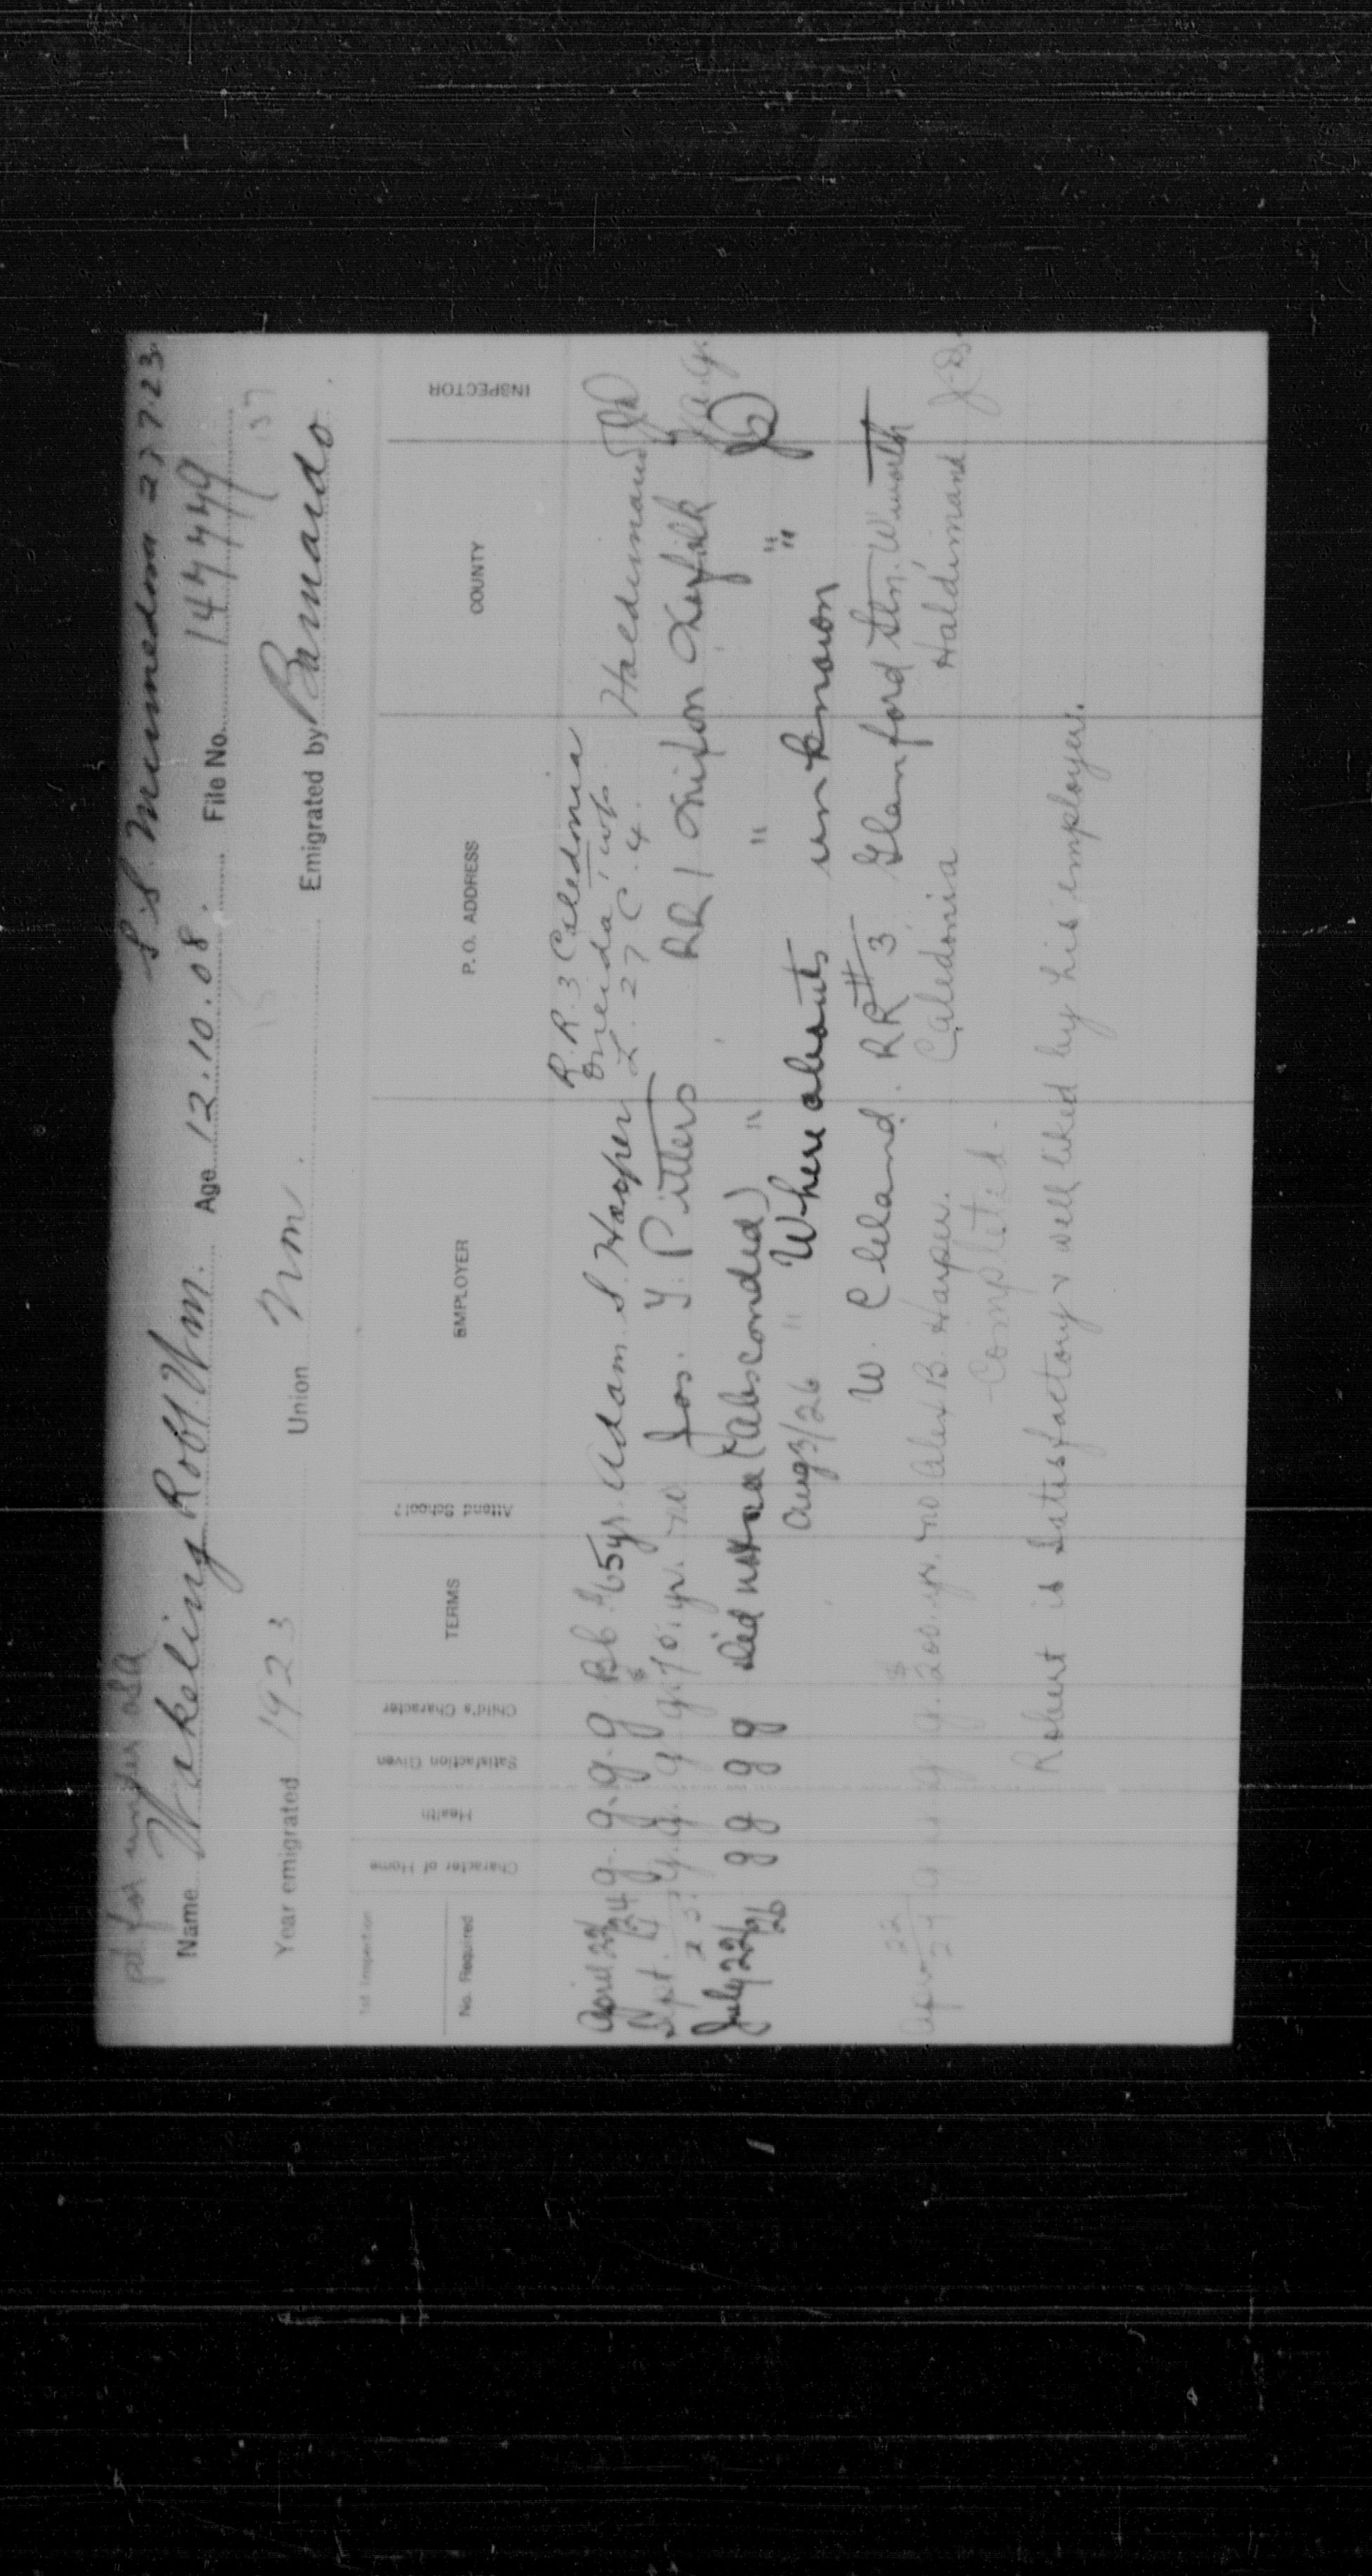 pd for under
S.S. Minnedosa 27.7.23
Name Wakeling Robt. Wm. Age 12.10.08. File No. 147779
137
Year emigrated 1923 Union Emigrated by Barnardo.
1st Inspection
No. Required Character of Home Health Satisfaction Given Child's Character TERMS Attend School? EMPLOYER P. O. ADDRESS COUNTY INSPECTOR
R.R. 3 Caledonia
Oneida Twp.
April 22/24 g. g. g. g. $65 yr. Adam. S. Harper L. 27 C. 4. Haldimand
Sept. g. g. g. g. $70. yr. no Jos. Y. Pitters RR 1 Norfolk
July 22/26 g g g g did not see (absconded) " " "
Aug 3/26 " Whereabouts unknown "
W. Cleland. RR# 3 Glanford Stn. Wentworth
Apr 22 g g g. $200. yr. no Alex B. Harper. Caledonia Haldimand
- Completed -
Robert is satisfactory & well liked by his employer.